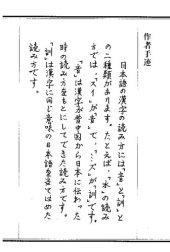 作者手迹
日本語の漢字の読み方には「音」と「訓」と
の二種類があります。たとえば、「水」の読み
方では、「スイ」が音で、「ミズ」が訓です。
「音」は漢字が昔中国から日本に伝わった
時の読み方をもとにしてできた読み方です。
「訓」は漢字に同じ意味の日本語を当てはめた
読み方です。